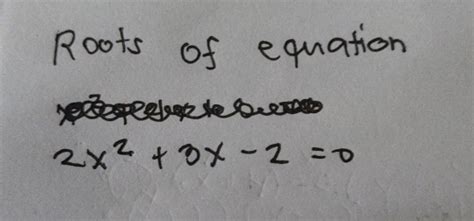 Roots of equation
2x² + 3x - 2 = 0